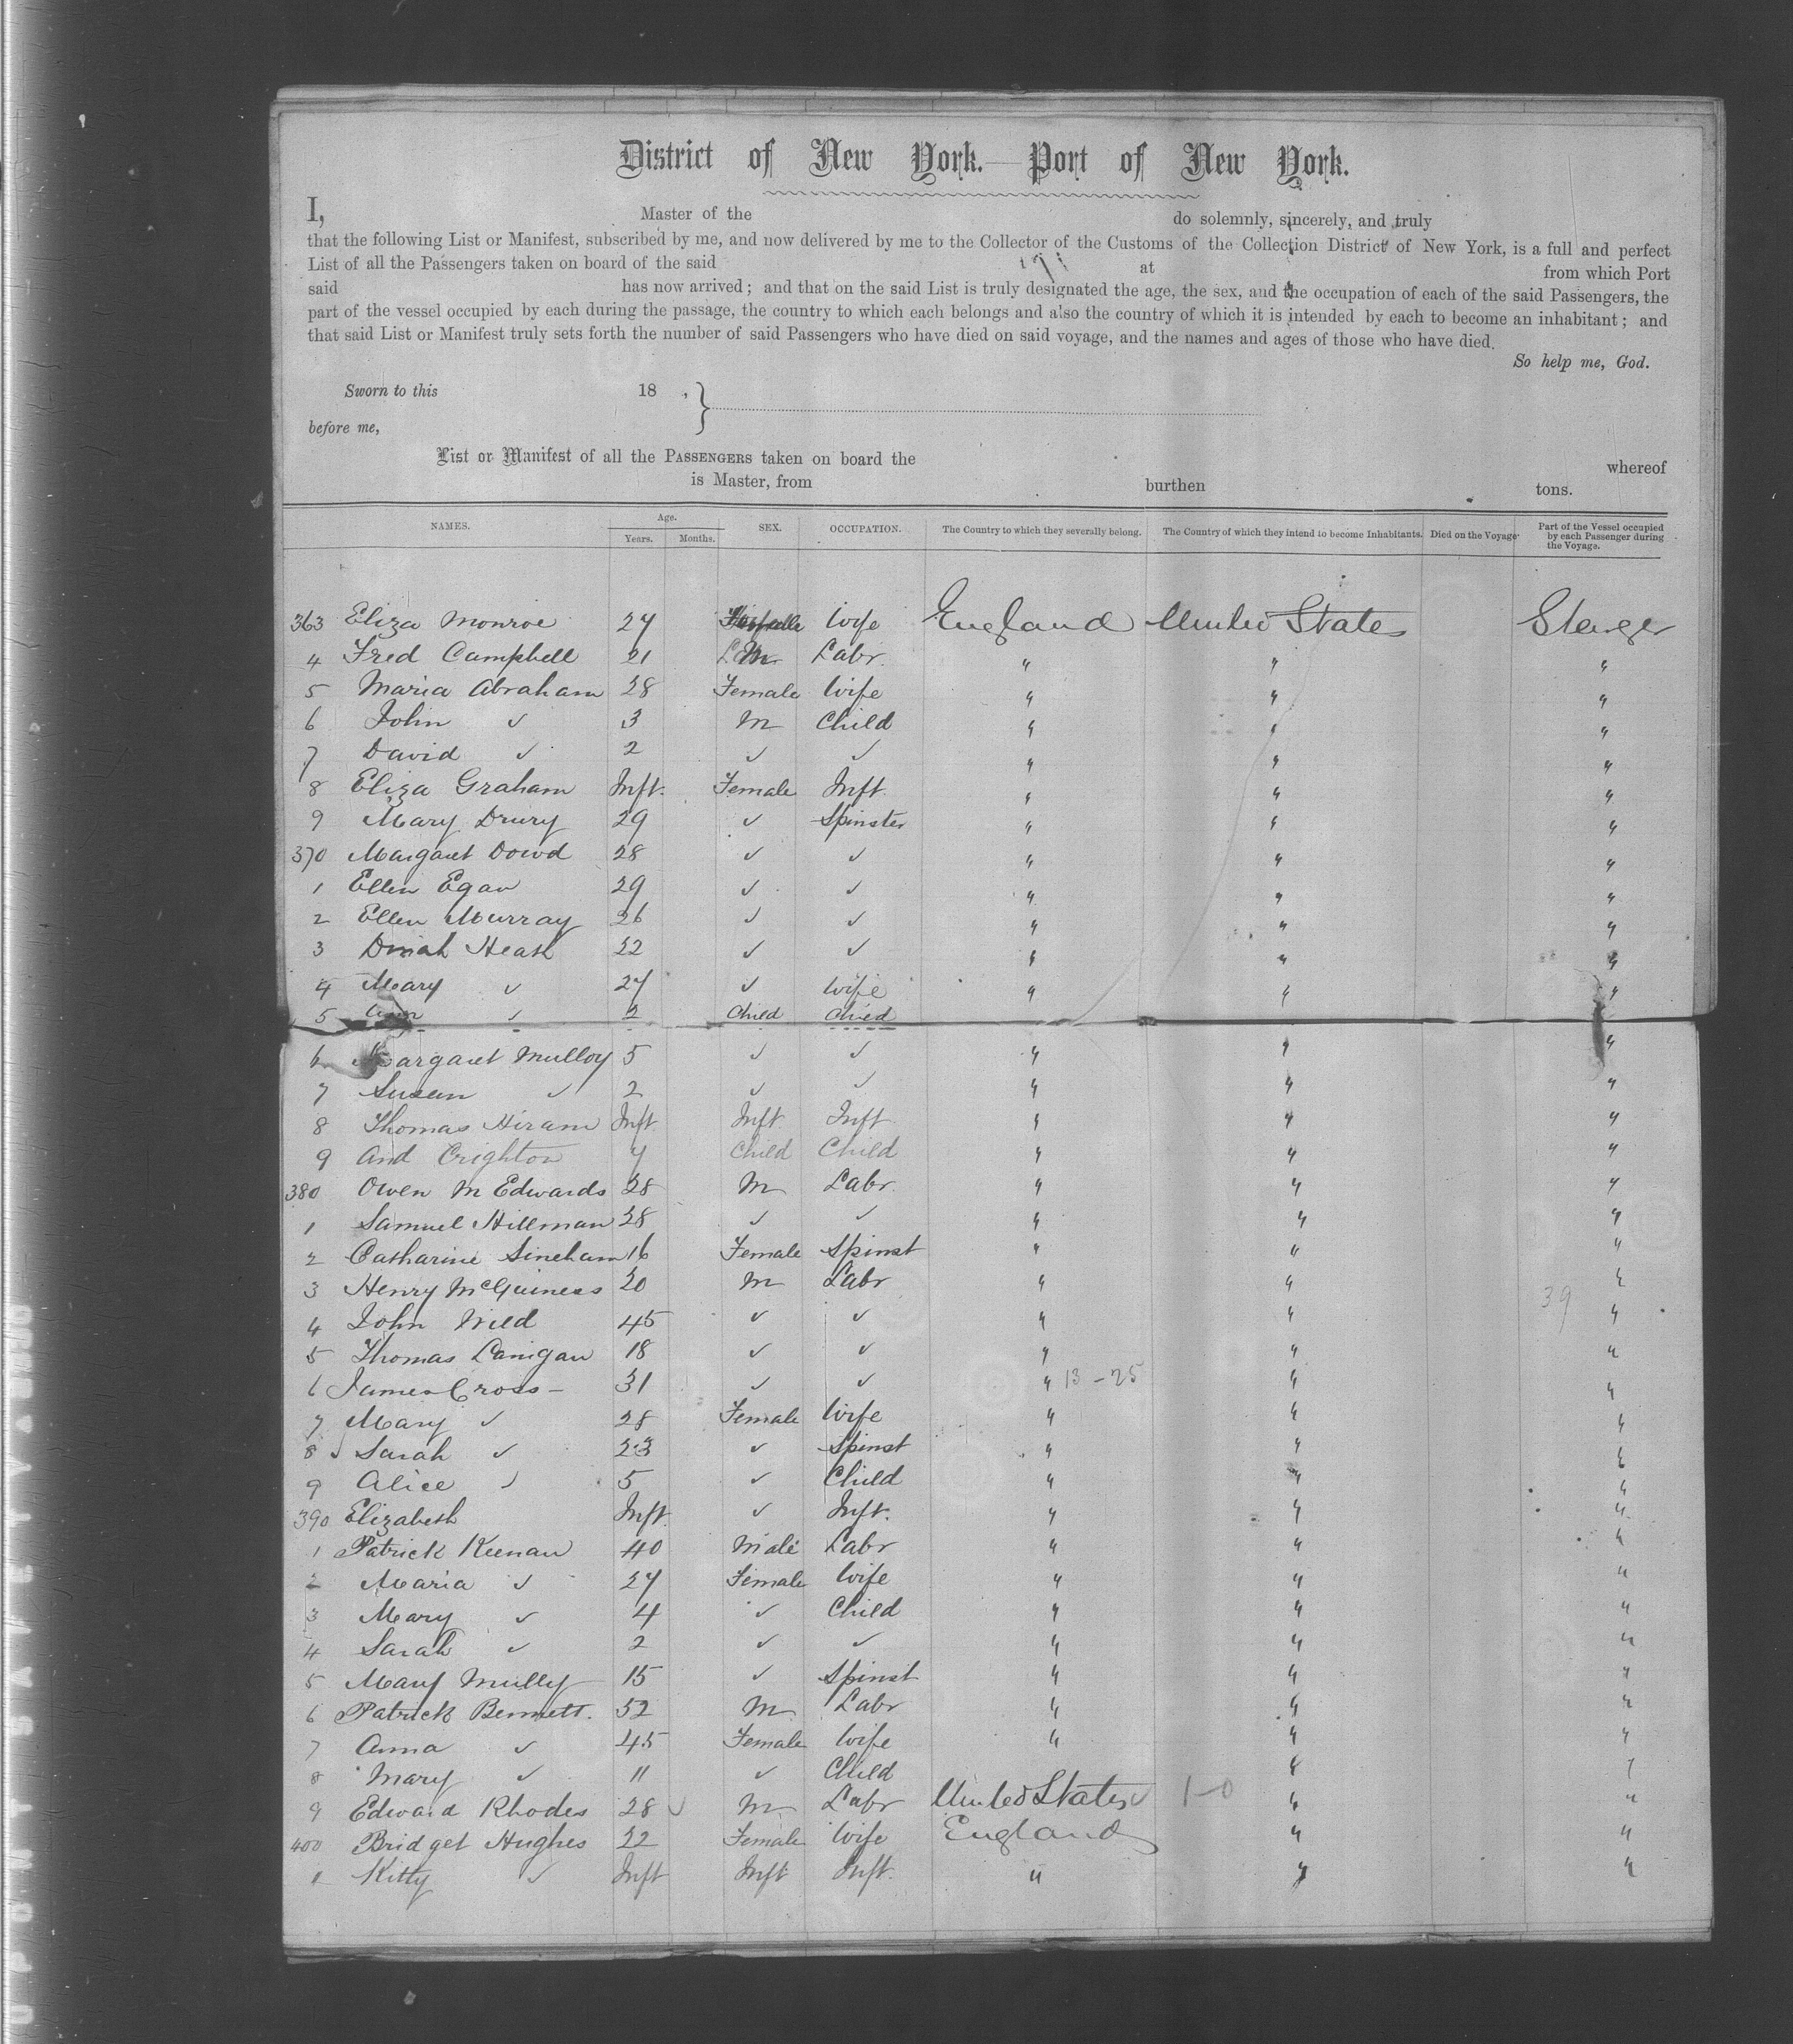 District of New York.—Port of New York.
I, Master of the do solemnly, sincerely, and truly
that the following List or Manifest, subscribed by me, and now delivered by me to the Collector of the Customs of the Collection District of New York, is a full and perfect
List of all the Passengers taken on board of the said at from which Port
said has now arrived; and that on the said List is truly designated the age, the sex, and the occupation of each of the said Passengers, the
part of the vessel occupied by each during the passage, the country to which each belongs and also the country of which it is intended by each to become an inhabitant; and
that said List or Manifest truly sets forth the number of said Passengers who have died on said voyage, and the names and ages of those who have died.
So help me, God.
Sworn to this 18 , }
before me,
List or Manifest of all the PASSENGERS taken on board the whereof
is Master, from burthen tons.
NAMES. Age. Years. Months. SEX. OCCUPATION. The Country to which they severally belong. The Country of which they intend to become Inhabitants. Died on the Voyage Part of the Vessel occupied by each Passenger during the Voyage.
363 Eliza Monroe 27 Wife England United States
4 Fred Campbell 21 M Labr. " " "
5 Maria Abraham 28 Female Wife " " "
6 John ✓ 3 M Child " " "
7 David ✓ 2 ✓ ✓ " " "
8 Eliza Graham Inft. Female Inft. " " "
9 Mary Drury 29 ✓ Spinster " " "
370 Margaret Dowd 28 ✓ ✓ " " "
1 Ellen Egan 29 ✓ ✓ " " "
2 Ellen Murray 26 ✓ ✓ " " "
3 Dinah Heath 22 ✓ ✓ " " "
4 Mary ✓ 27 ✓ Wife " " "
5 Ann ✓ 2 Child Child
6 Margaret Mulloy 5 ✓ ✓ " " "
7 Susan ✓ 2 ✓ ✓ " " "
8 Thomas Hiram Inft Inft. Inft " " "
9 And Crighton 4 Child Child " " "
380 Owen M Edwards 28 M Labr. " " "
1 Samuel Hillman 28 ✓ ✓ " " "
2 Catharine Sineham 16 Female Spinst " " "
3 Henry McGuiness 20 M Labr " " "
39
4 John Wild 45 ✓ ✓ " " "
5 Thomas Lanigan 18 ✓ ✓ " " "
6 James Cross – 31 ✓ ✓ " 13-25 " "
7 Mary ✓ 28 Female Wife " " "
8 ✓ Sarah ✓ 23 ✓ Spinst " " "
9 Alice ✓ 5 ✓ Child " " "
390 Elizabeth Inft. ✓ Inft. " " "
1 Patrick Keenan 40 Male Labr " " "
2 Maria ✓ 27 Female Wife " " "
3 Mary ✓ 4 ✓ Child " " "
4 Sarah ✓ 2 ✓ ✓ " " "
5 Mary Mully 15 ✓ Spinst " " "
6 Patrick Bennett. 52 M Labr " " "
7 Anna ✓ 45 Female Wife " " "
8 Mary ✓ 11 ✓ Child " "
9 Edward Rhodes 28 ✓ M Labr United States ✓ 1-0 " "
400 Bridget Hughes 22 Female Wife England " "
1 Kitty ✓ Inft Inft Inft. " " "